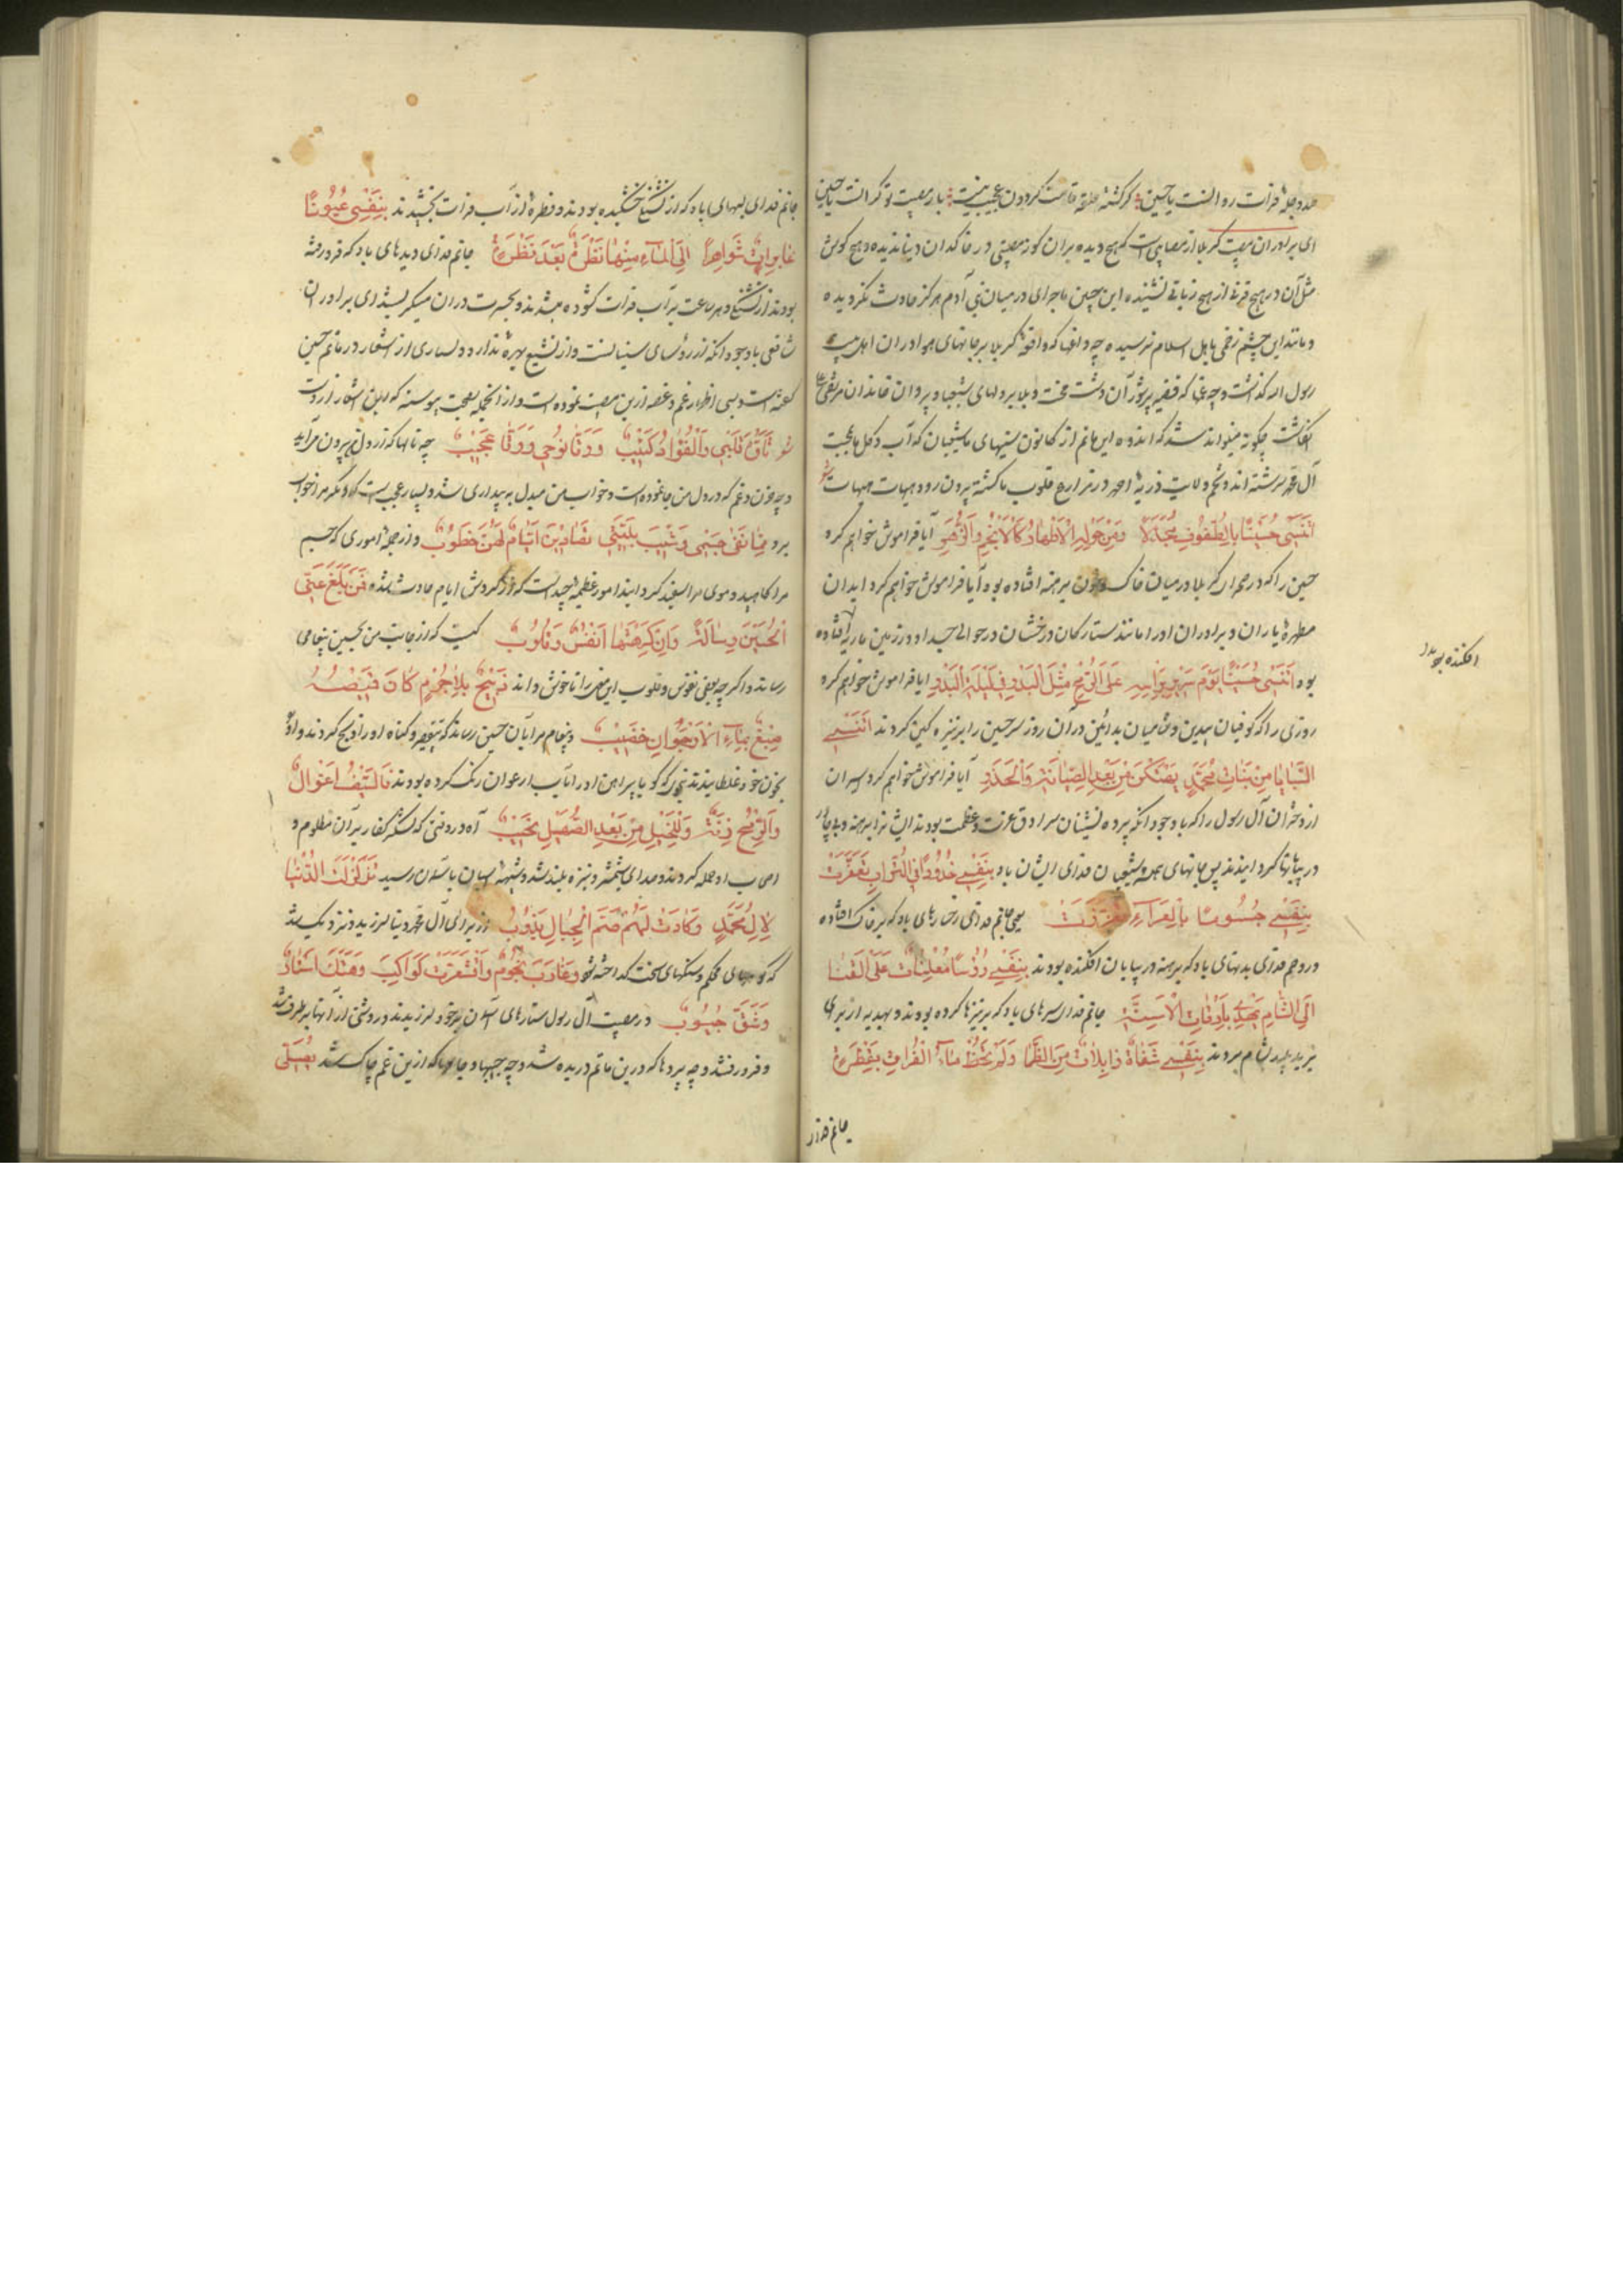 صد دجلهٔ فرات روانست یا حسین سرگشتهٔ حلقه قامت گردون عجیب نیست بار مصیبت تو گرانست یا حسین
ای برادران مصیبت کربلا از مصایبی است که هیچ دیده بر آن گونه مصیبتی در خاکدان دنیا ندیده و هیچ گوش
مثل آن در هیچ قرنی از هیچ زبانی نشنیده این چنین ماجرای در میان بنی آدم هرگز حادث نگردیده
و مانند این چشم زخمی باهل اسلام نرسیده چه داغها که واقعهٔ کربلا بر جانهای هواداران اهل بیت
رسول الله گذاشت و چه غمها که قضیه پرشور آن دشت محنت و بلا بر دلهای شیعیان و پیروان خاندان مرتضی
گماشت چگونه میتواند شد که اندوه این ماتم از کانون سینهای ما شیعیان که آب و گل ما بمحبت
آل محمد سرشته اند و تخم ولایت ذریهٔ احمد در مزارع قلوب ما کشته بیرون رود هیهات هیهات شعر
أَنَنْسَى حُسَيْنًا بِالطُّفُوفِ مُجَدَّلًا وَمِنْ حَوْلِهِ الْأَطْهَارُ كَالْأَنْجُمِ الزُّهْرِ آیا فراموش خواهم کرد
حسین را که در صحرای کربلا در میان خاک و خون برهنه افتاده بود آیا فراموش خواهم کرد ابدان
مطهرهٔ یاران و برادران او را مانند ستارگان درخشان در حوالی جسد او در زمین ماریه افتاده
بود أَنَنْسَى حُسَيْنًا يَوْمَ سِيرَ بِرَأْسِهِ عَلَى الرُّمْحِ مِثْلَ الْبَدْرِ فِي لَيْلَةِ الْبَدْرِ آیا فراموش خواهم کرد
روزی را که کوفیان بیدین و شامیان بدآئین در آن روز سر حسین را بر نیزه کین کردند أَنَنْسَى
السَّبَايَا مِنْ بَنَاتِ مُحَمَّدٍ يُهَتَّكْنَ مِنْ بَعْدِ الصِّيَانَةِ وَالْخِدْرِ آیا فراموش خواهم کرد اسیران
از دختران آل رسول را که با وجود آنکه پرده نشینان سرادق عزت و عظمت بودند ایشانرا برهنه و بی چادر
در بیابانها گردانیدند پس جانهای همه شیعیان فدای ایشان باد بِنَفْسِي خُدُودًا فِي التُّرَابِ تَعَفَّرَتْ
بِنَفْسِي جُسُومًا بِالْعَرَاءِ تَعَرَّتْ یعنی جانم فدای رخسارهای باد که بر خاک افتاده
و روحم فدای بدنهای باد که برهنه در بیابان افکنده بودند بِنَفْسِي رُؤُسًا مُعْلِيَاتٍ عَلَى الْقَنَا
إِلَى الشَّامِ تُهْدَى بِارِقَاتِ الْأَسِنَّةِ جانم فدای سرهای باد که بر نیزها کرده بودند و بهدیه از برای
یزید پلید بشام بردند بِنَفْسِي شِفَاهٌ ذَابِلَاتٌ مِنَ الظَّمَا وَلَمْ تَحْظَ مَاءَ الْفُرَاتِ بِقَطْرَةٍ
افکنده بودند
جانم فدای
جانم فدای لبهای باد که از تشنگی خشکیده بودند و قطرهٔ از آب فرات نچشیدند بِنَفْسِي عُيُونًا
غَايِرَاتٍ شَوَاهِرًا إِلَى الْمَاءِ مِنْهَا نَظْرَةٌ بَعْدَ نَظْرَةٍ جانم فدای دیدهای باد که فرو رفته
بودند از تشنگی و هر ساعت بر آب فرات گشوده میشدند و بحسرت در آن مینگریستند ای برادران
شافعی با وجود آنکه از رؤسای سنیانست و از تشیع بهره ندارد و بسیاری از اشعار در ماتم حسین
گفته است و بسی اظهار غم و غصه ازین مصیبت نموده است و از آنجمله بصحت پیوسته که این اشعار ازوست
شعر تَأَوَّهَ قَلْبِي وَالْفُؤَادُ كَئِيبُ وَأَرَّقَ نَوْمِي وَالرُّقَادُ عَجِيبُ چه نالها که از دل من بیرون می آید
و چه حزن و غم که در دل من جا نموده است و خواب من مبدل به بیداری شده و بسیار عجیب است که دیگر مرا خواب
برد مِمَّا نَفَى جِسْمِي وَشَيَّبَ لِمَّتِي تَصَارِيفُ أَيَّامٍ لَهُنَّ خُطُوبُ و از جملهٔ اموری که جسم
مرا کاهیده و موی مرا سفید گردانیده امور عظیمه چند است که از گردش ایام حادث شده فَمَنْ مُبْلِغٌ عَنِّي
الْحُسَيْنَ رِسَالَةً وَإِنْ كَرِهَتْهَا أَنْفُسٌ وَقُلُوبُ کیست که از جانب من بحسین پیغامی
رساند و اگر چه بعضی نفوس و قلوب این معنی را ناخوش دارند ذَبِيحٌ بِلَا جُرْمٍ كَأَنَّ قَمِيصَهُ
صَبِيغٌ بِمَاءِ الْأُرْجُوَانِ خَضِيبُ و پیغام مرا بآن حسین رساند که بی تقصیر و گناه او را ذبح کردند و او
بخون خود غلطانیدند بنحوی که گویا پیراهن او را بآب ارغوان رنگ کرده بودند فَلِلسَّيْفِ إِعْوَالٌ
وَلِلرُّمْحِ رَنَّةٌ وَلِلْخَيْلِ مِنْ بَعْدِ الصَّهِيلِ نَحِيبُ آه در وقتی که لشکر کفار بر آن مظلوم و
اصحاب او حمله کردند و صدای شمشیر و نیزه بلند شد و شیههٔ اسبان بآسمان رسید تَزَلْزَلَتِ الدُّنْيَا
لِآلِ مُحَمَّدٍ وَكَادَتْ لَهُمْ صُمُّ الْجِبَالِ تَذُوبُ از برای آل محمد دنیا لرزید و نزدیک شد
که کوههای محکم و سنگهای سخت گداخته شود وَغَارَتْ نُجُومٌ وَاقْشَعَرَّتْ كَوَاكِبُ وَهُتِّكَ أَسْتَارٌ
وَشُقَّ جُيُوبُ در مصیبت آل رسول ستارهای آسمان بر خود لرزیدند و روشنی از آنها برطرف شد
و فرو رفتند و چه پردها که درین ماتم دریده شد و چه جیبها و جامها که ازین غم چاک شد يُصَلَّى